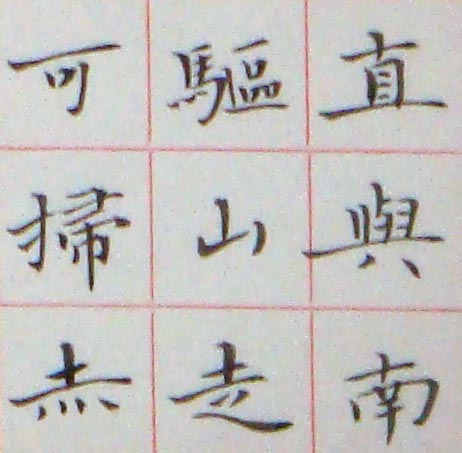 直與南
驅山走
可掃赤